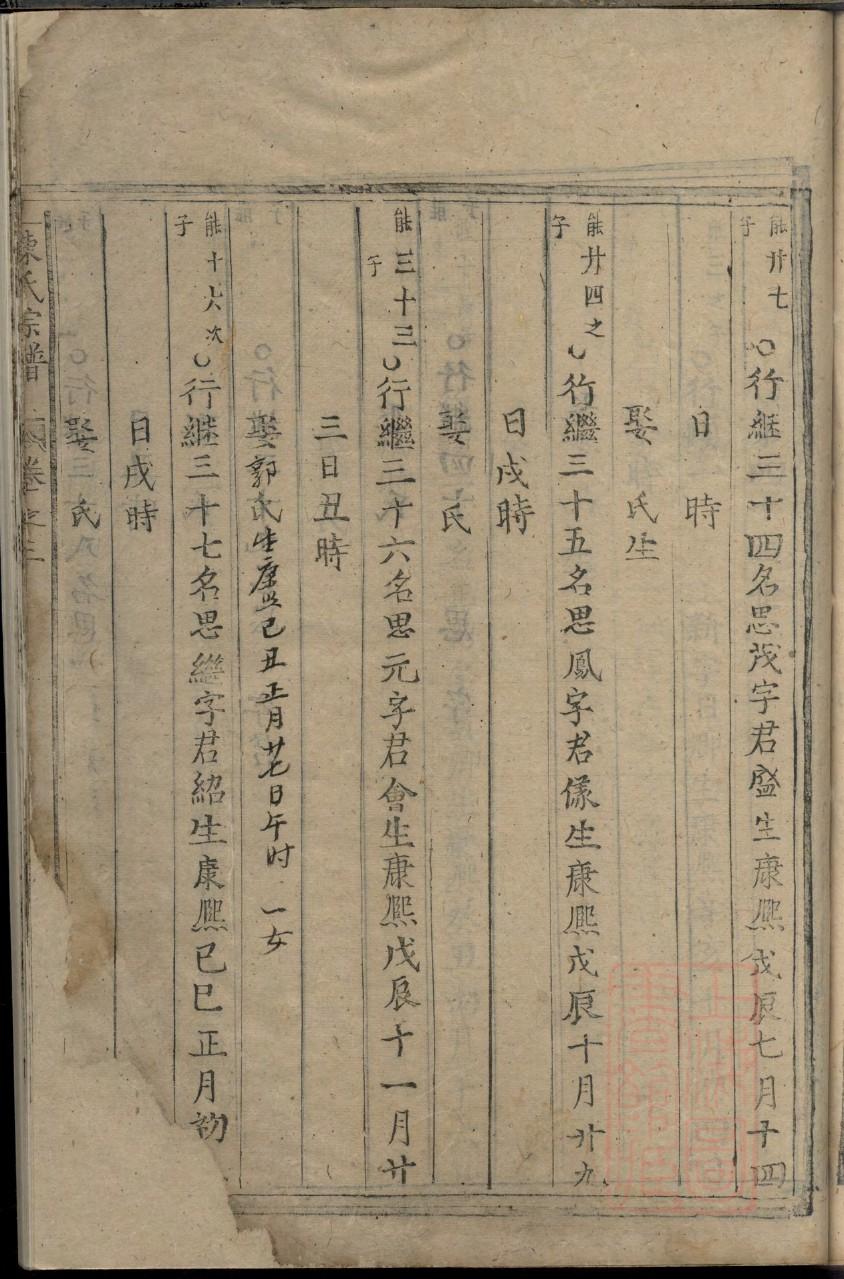 能廿七子○行継三十四名思茂字君盛生康熙戊辰七月十四
日 時
娶 氏生
能廿四之子○行繼三十五名思鳳字君儀生康熙戊辰十月廿九
日戌時
娶 氏
能三十三子○行繼三十六名思元字君會生康熙戊辰十一月廿
三日丑時
娶郭氏生康熙己丑正月廿七日午时 一女
能十六次子○行継三十七名思繼字君紹生康熙己巳正月初
日戌時
娶 氏
陳氏宗譜 卷之三